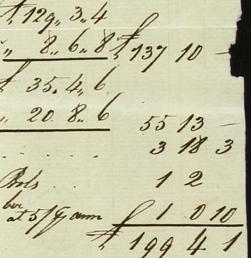 £ 129 „ 3 „ 4
„ 8 „ 6 „ 8 £ 137 10 —
£ 35 „ 4 „ 6
„ 20 „ 8 „ 6 55 13 —
3 18 3
1 2
ber
at 5/ ann £ 1 0 10
£ 199 4 1